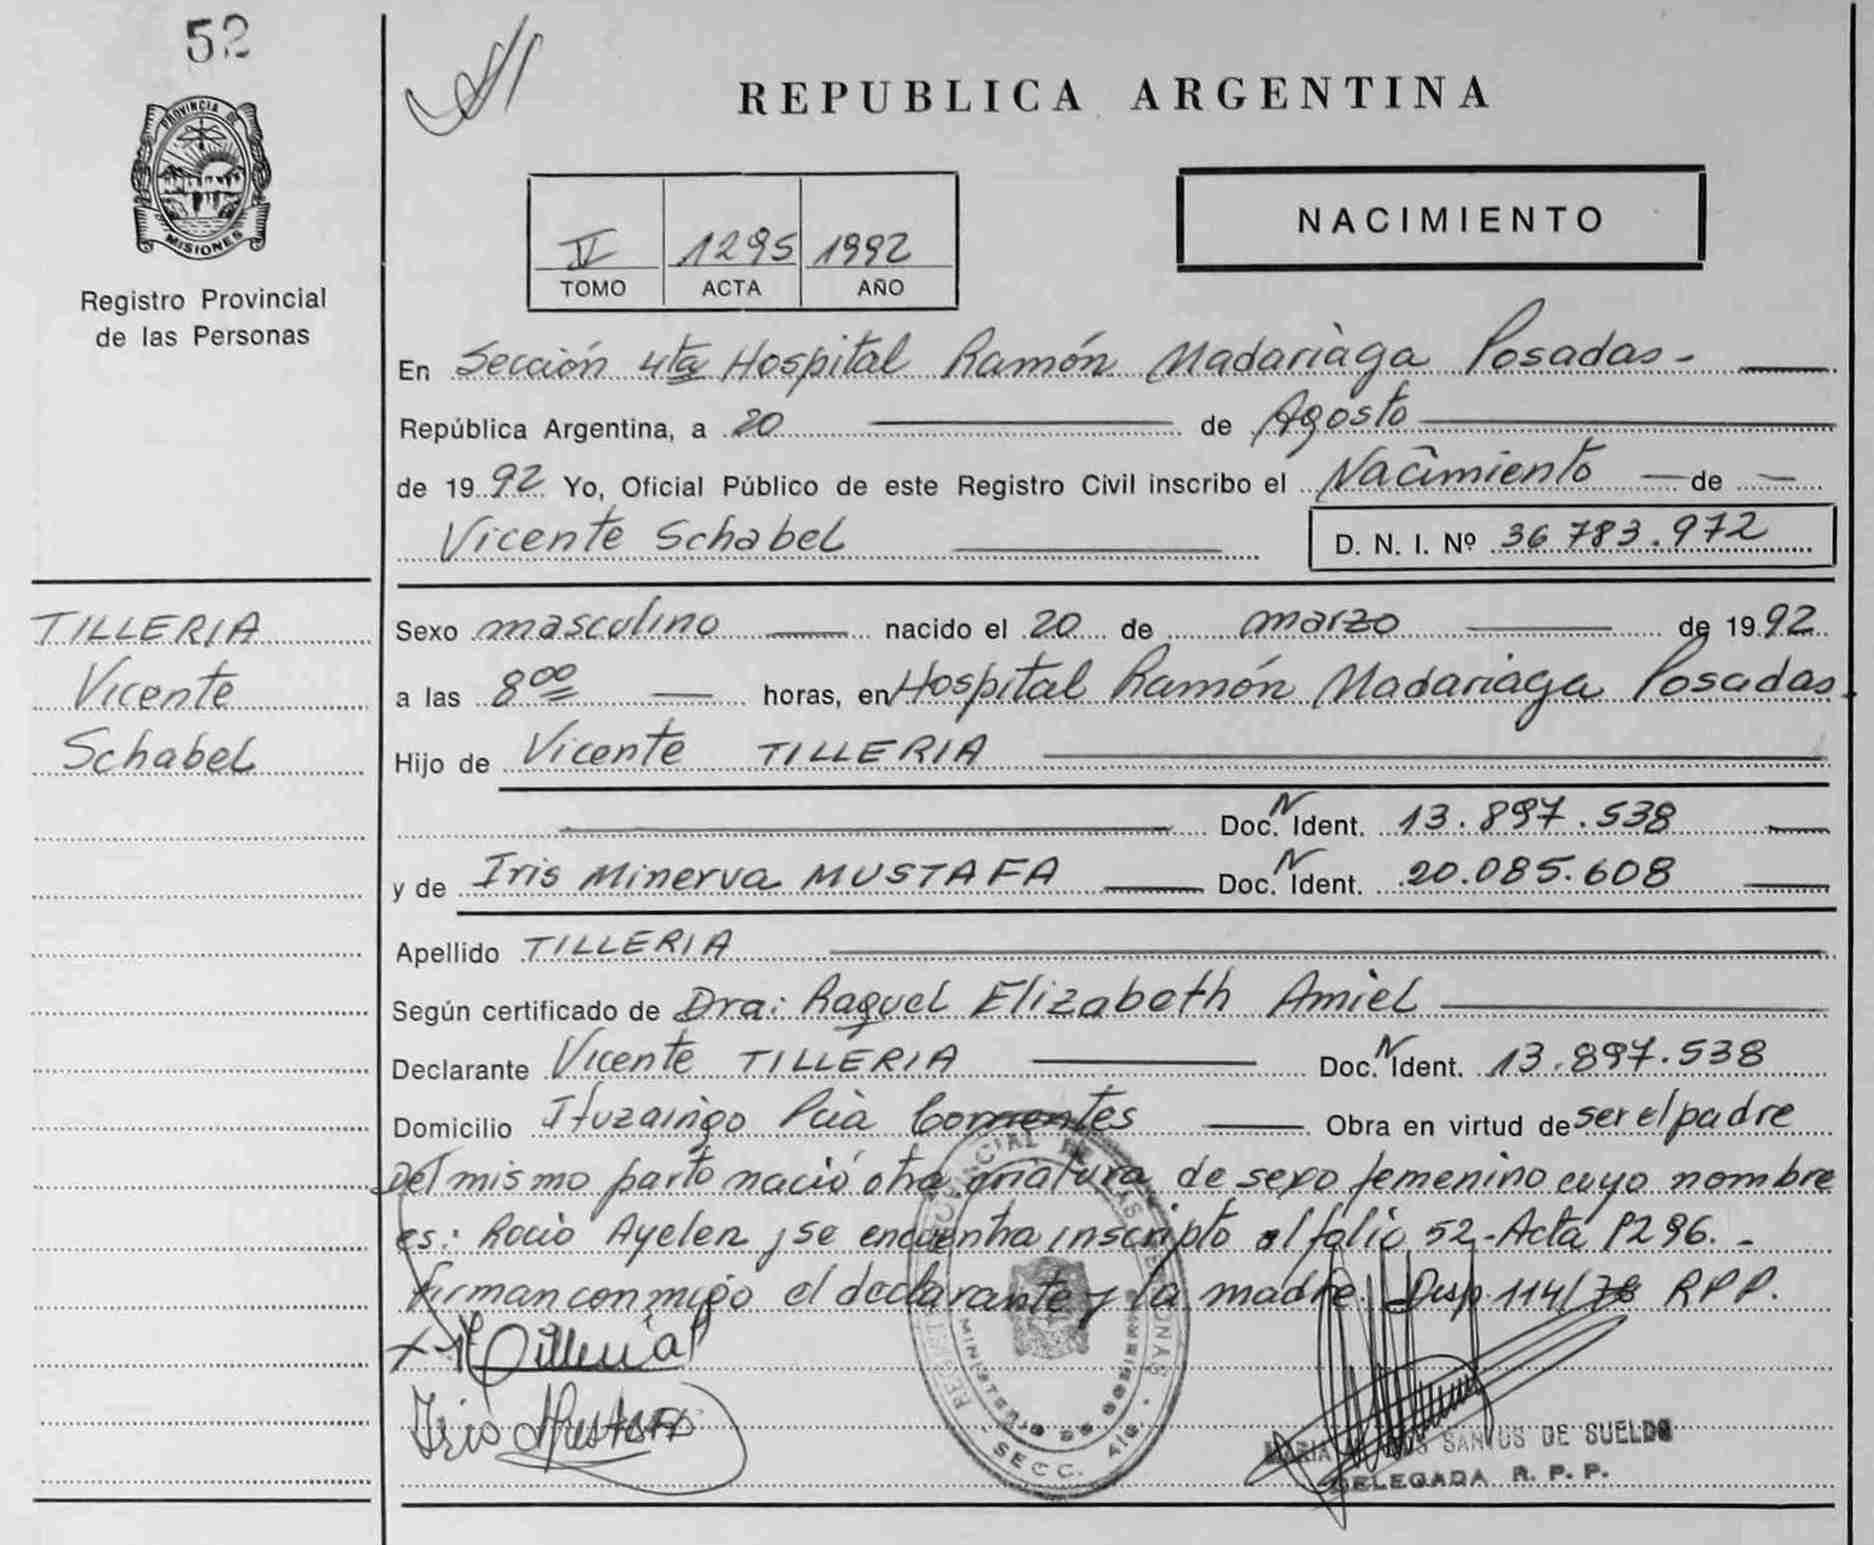 52
PROVINCIA DE
MISIONES
Registro Provincial
de las Personas
TILLERIA
Vicente
Schabel
REPUBLICA ARGENTINA
II 1295 1992
TOMO ACTA AÑO
NACIMIENTO
En Sección 4ta Hospital Ramón Madariaga Posadas-
República Argentina, a 20 de Agosto
de 1992 Yo, Oficial Público de este Registro Civil inscribo el Nacimiento de
Vicente Schabel D. N. I. Nº 36 783.972
Sexo masculino nacido el 20 de marzo de 1992
a las 8 00 horas, en Hospital Ramón Madariaga Posadas.
Hijo de Vicente TILLERIA
Doc. N Ident. 13.897.538
y de Iris Minerva MUSTAFA Doc. N Ident. 20.085.608
Apellido TILLERIA
Según certificado de Dra: Raquel Elizabeth Amiel
Declarante Vicente TILLERIA Doc. N Ident. 13.897.538
Domicilio Ituzaingo Pcia Corrientes Obra en virtud de ser el padre
Del mismo parto nació otra criatura de sexo femenino cuyo nombre
es: Rocio Ayelen, se encuentra inscripto al folio 52-Acta 1296.-
firman conmigo el declarante y la madre. Disp. 114/78 RPP.
Tilleria
Iris Mustafa
MINISTERIO DE GOBIERNO
SECC. 4ta.
MARIA SANTOS DE SUELDO
DELEGADA R. P. P.